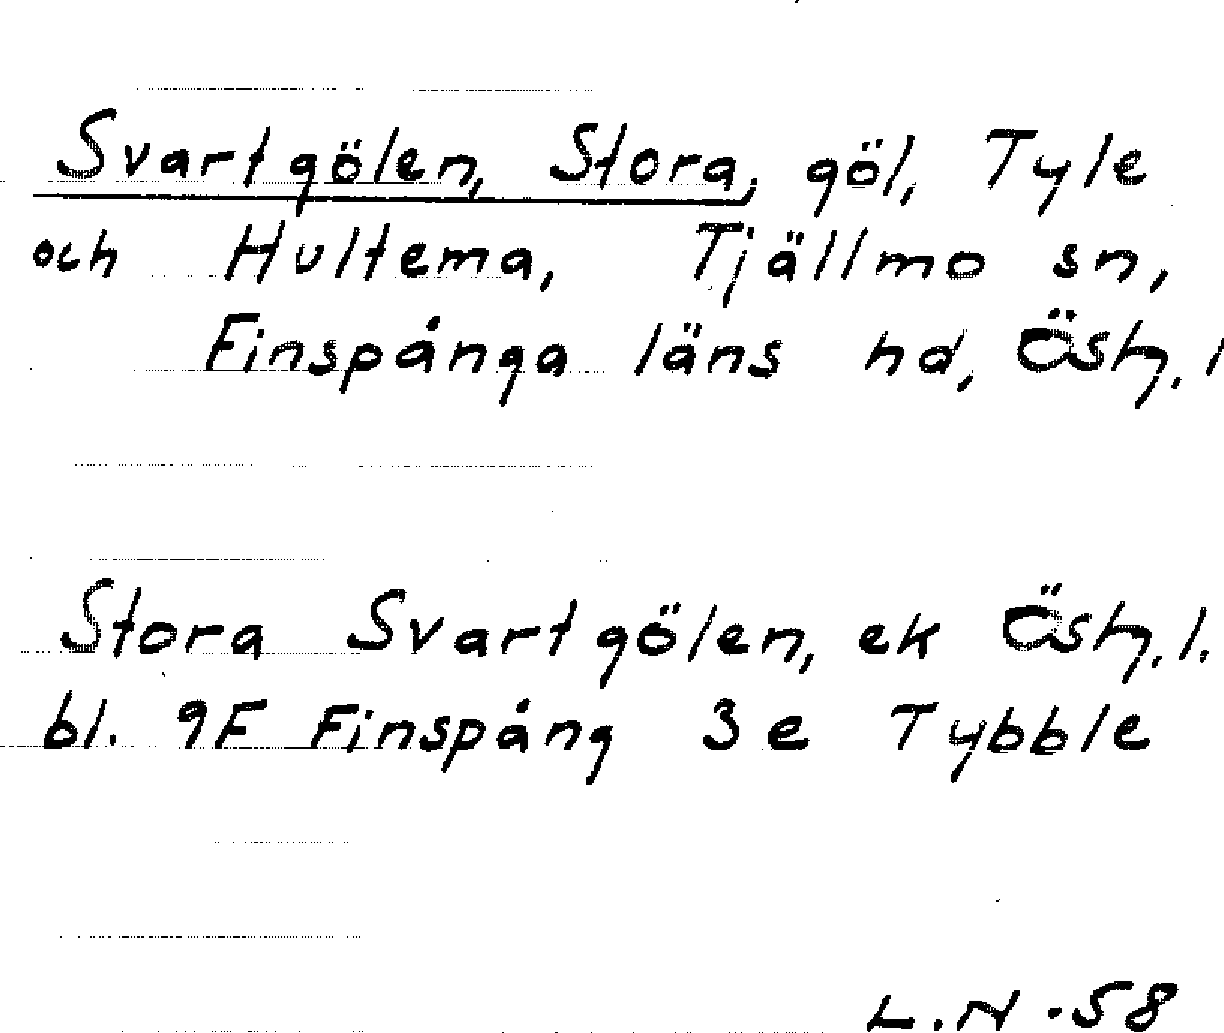 Svartgölen, Stora, göl, Tyle
och Hultema, Tjällmo sn,
Finspånga läns hd, Östg. l
Stora Svartgölen, ek Östg. l.
bl. 9F Finspång 3e Tybble
L.N -58